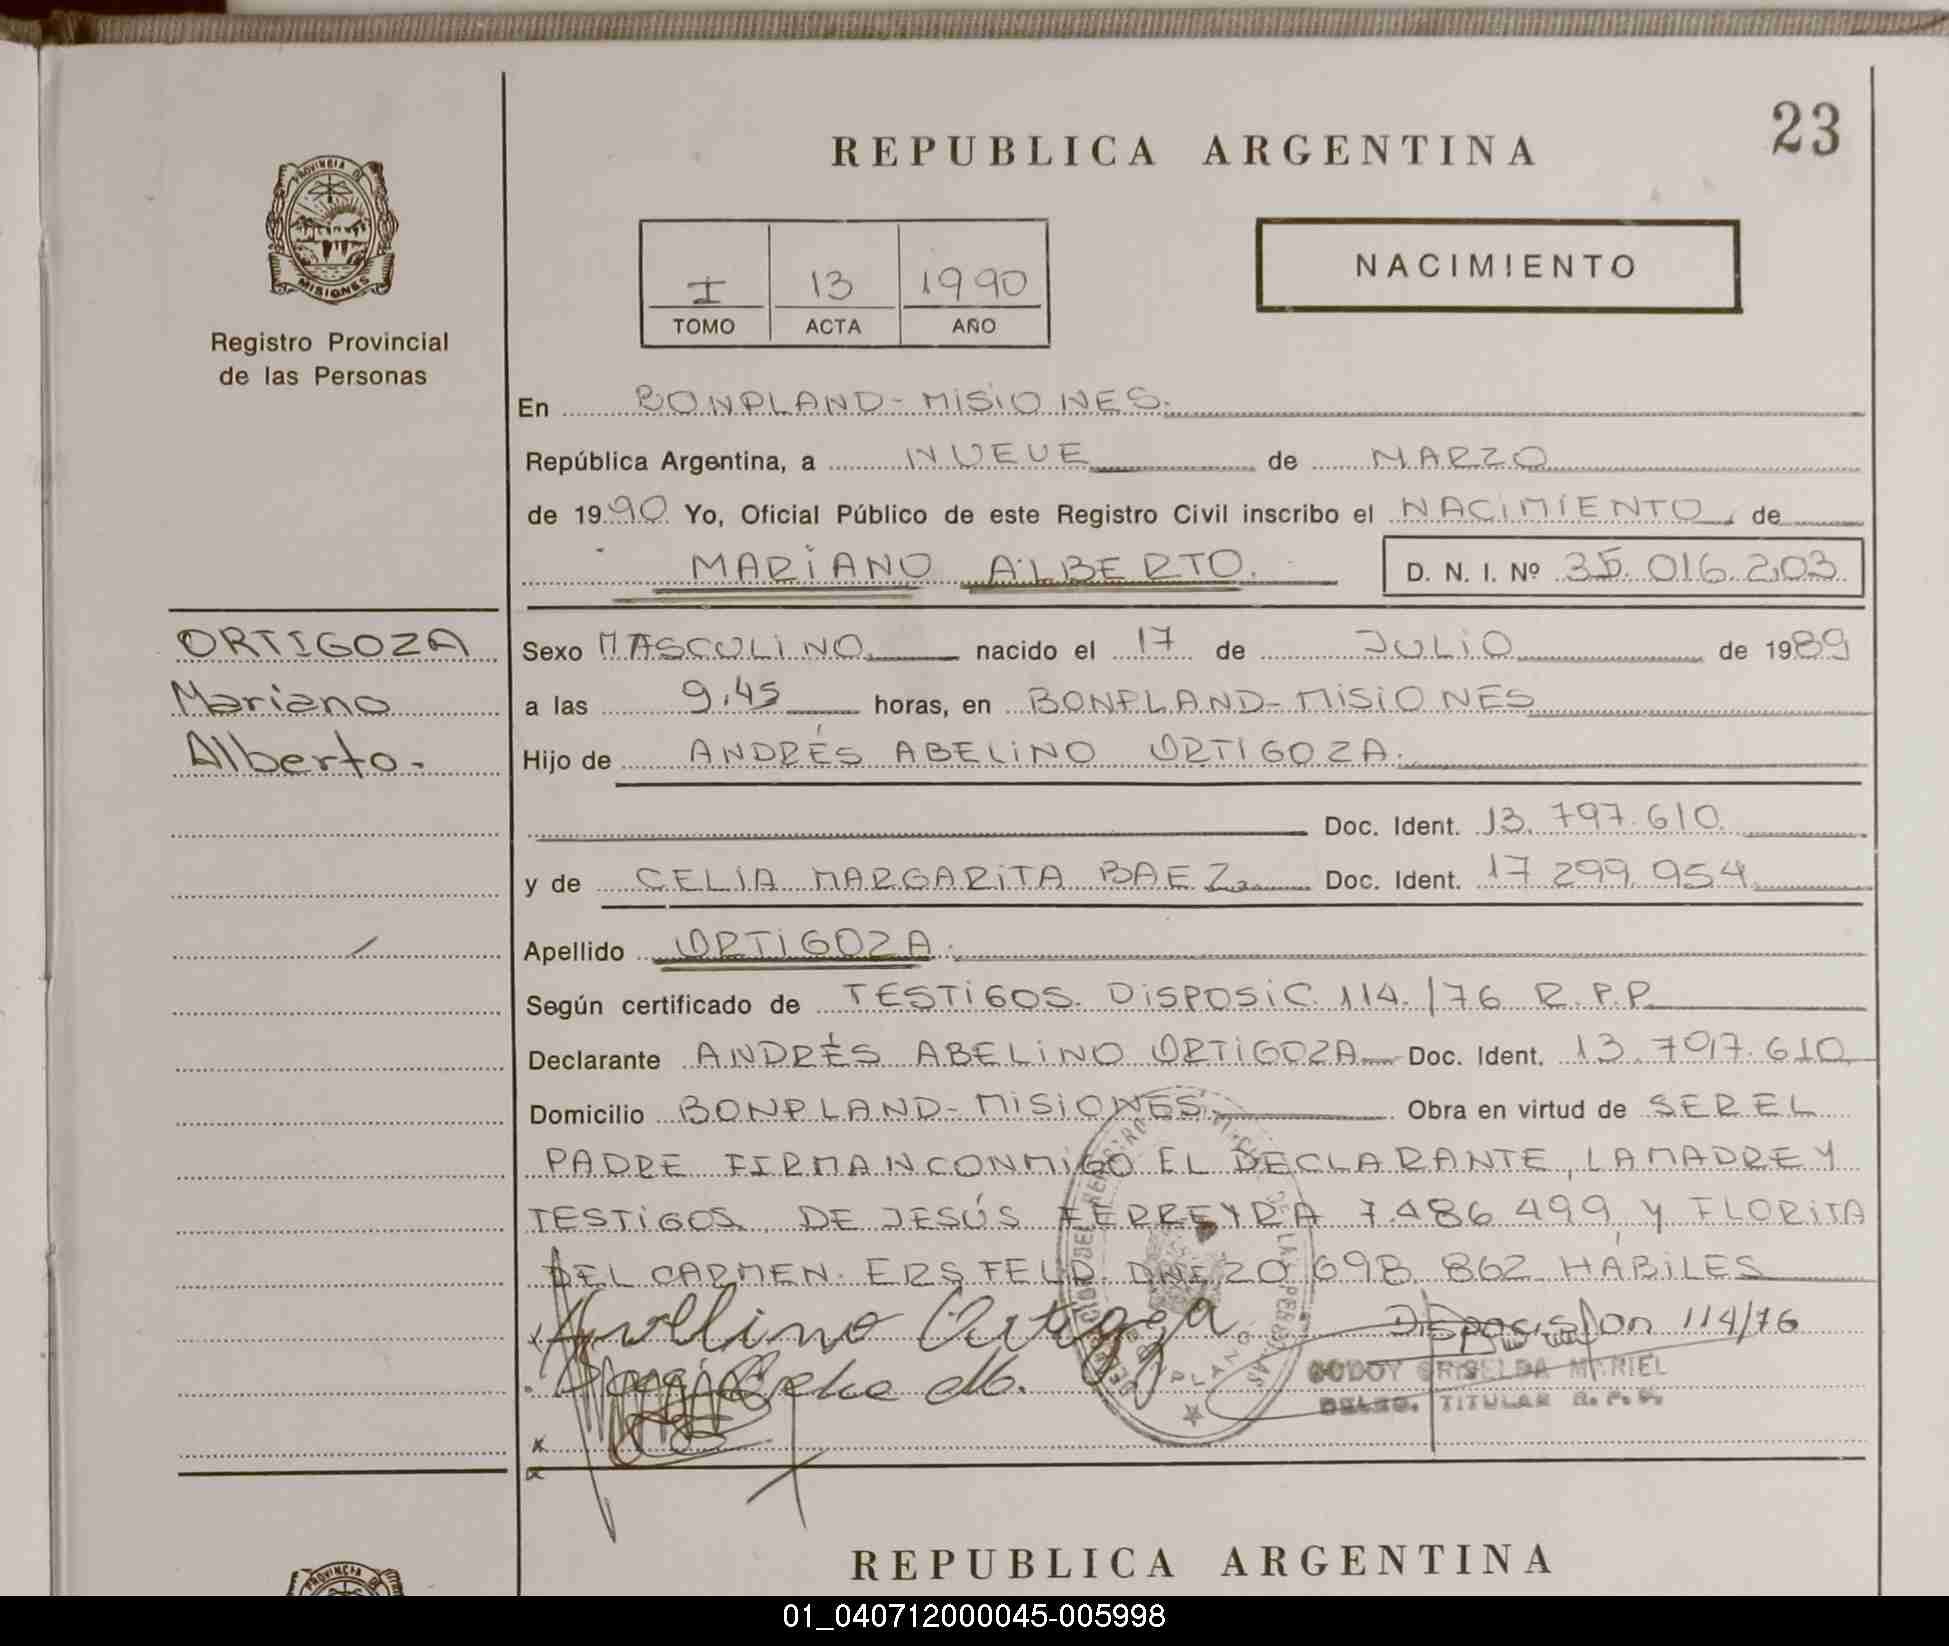 23
REPUBLICA ARGENTINA
PROVINCIA DE
MISIONES
Registro Provincial
de las Personas
NACIMIENTO
I 13 1990
TOMO ACTA AÑO
En BONPLAND - MISIONES.
República Argentina, a NUEVE de MARZO
de 1990 Yo, Oficial Público de este Registro Civil inscribo el NACIMIENTO, de
MARIANO ALBERTO. D. N. I. Nº 35.016.203
ORTIGOZA
Mariano
Alberto.
Sexo MASCULINO nacido el 17 de JULIO de 1989
a las 9,45 horas, en BONPLAND - MISIONES
Hijo de ANDRÉS ABELINO ORTIGOZA.
Doc. Ident. 13.797.610
y de CELIA MARGARITA BAEZ Doc. Ident. 17 299 954
Apellido ORTIGOZA.
Según certificado de TESTIGOS. DISPOSIC. 114./76 R.P.P.
Declarante ANDRÉS ABELINO ORTIGOZA Doc. Ident. 13.797.610
Domicilio BONPLAND - MISIONES Obra en virtud de SER EL
PADRE FIRMAN CONMIGO EL DECLARANTE, LA MADRE Y
TESTIGOS DE JESÚS FERREYRA 7.486 499 y FLORITA
DEL CARMEN ERSFELD DNI 20 698 862 HÁBILES
Avellino Ortigoza Disposision 114/76
GODOY GRISELDA MARIEL
TITULAR
REPUBLICA ARGENTINA
PROVINCIA DE
01_040712000045-005998